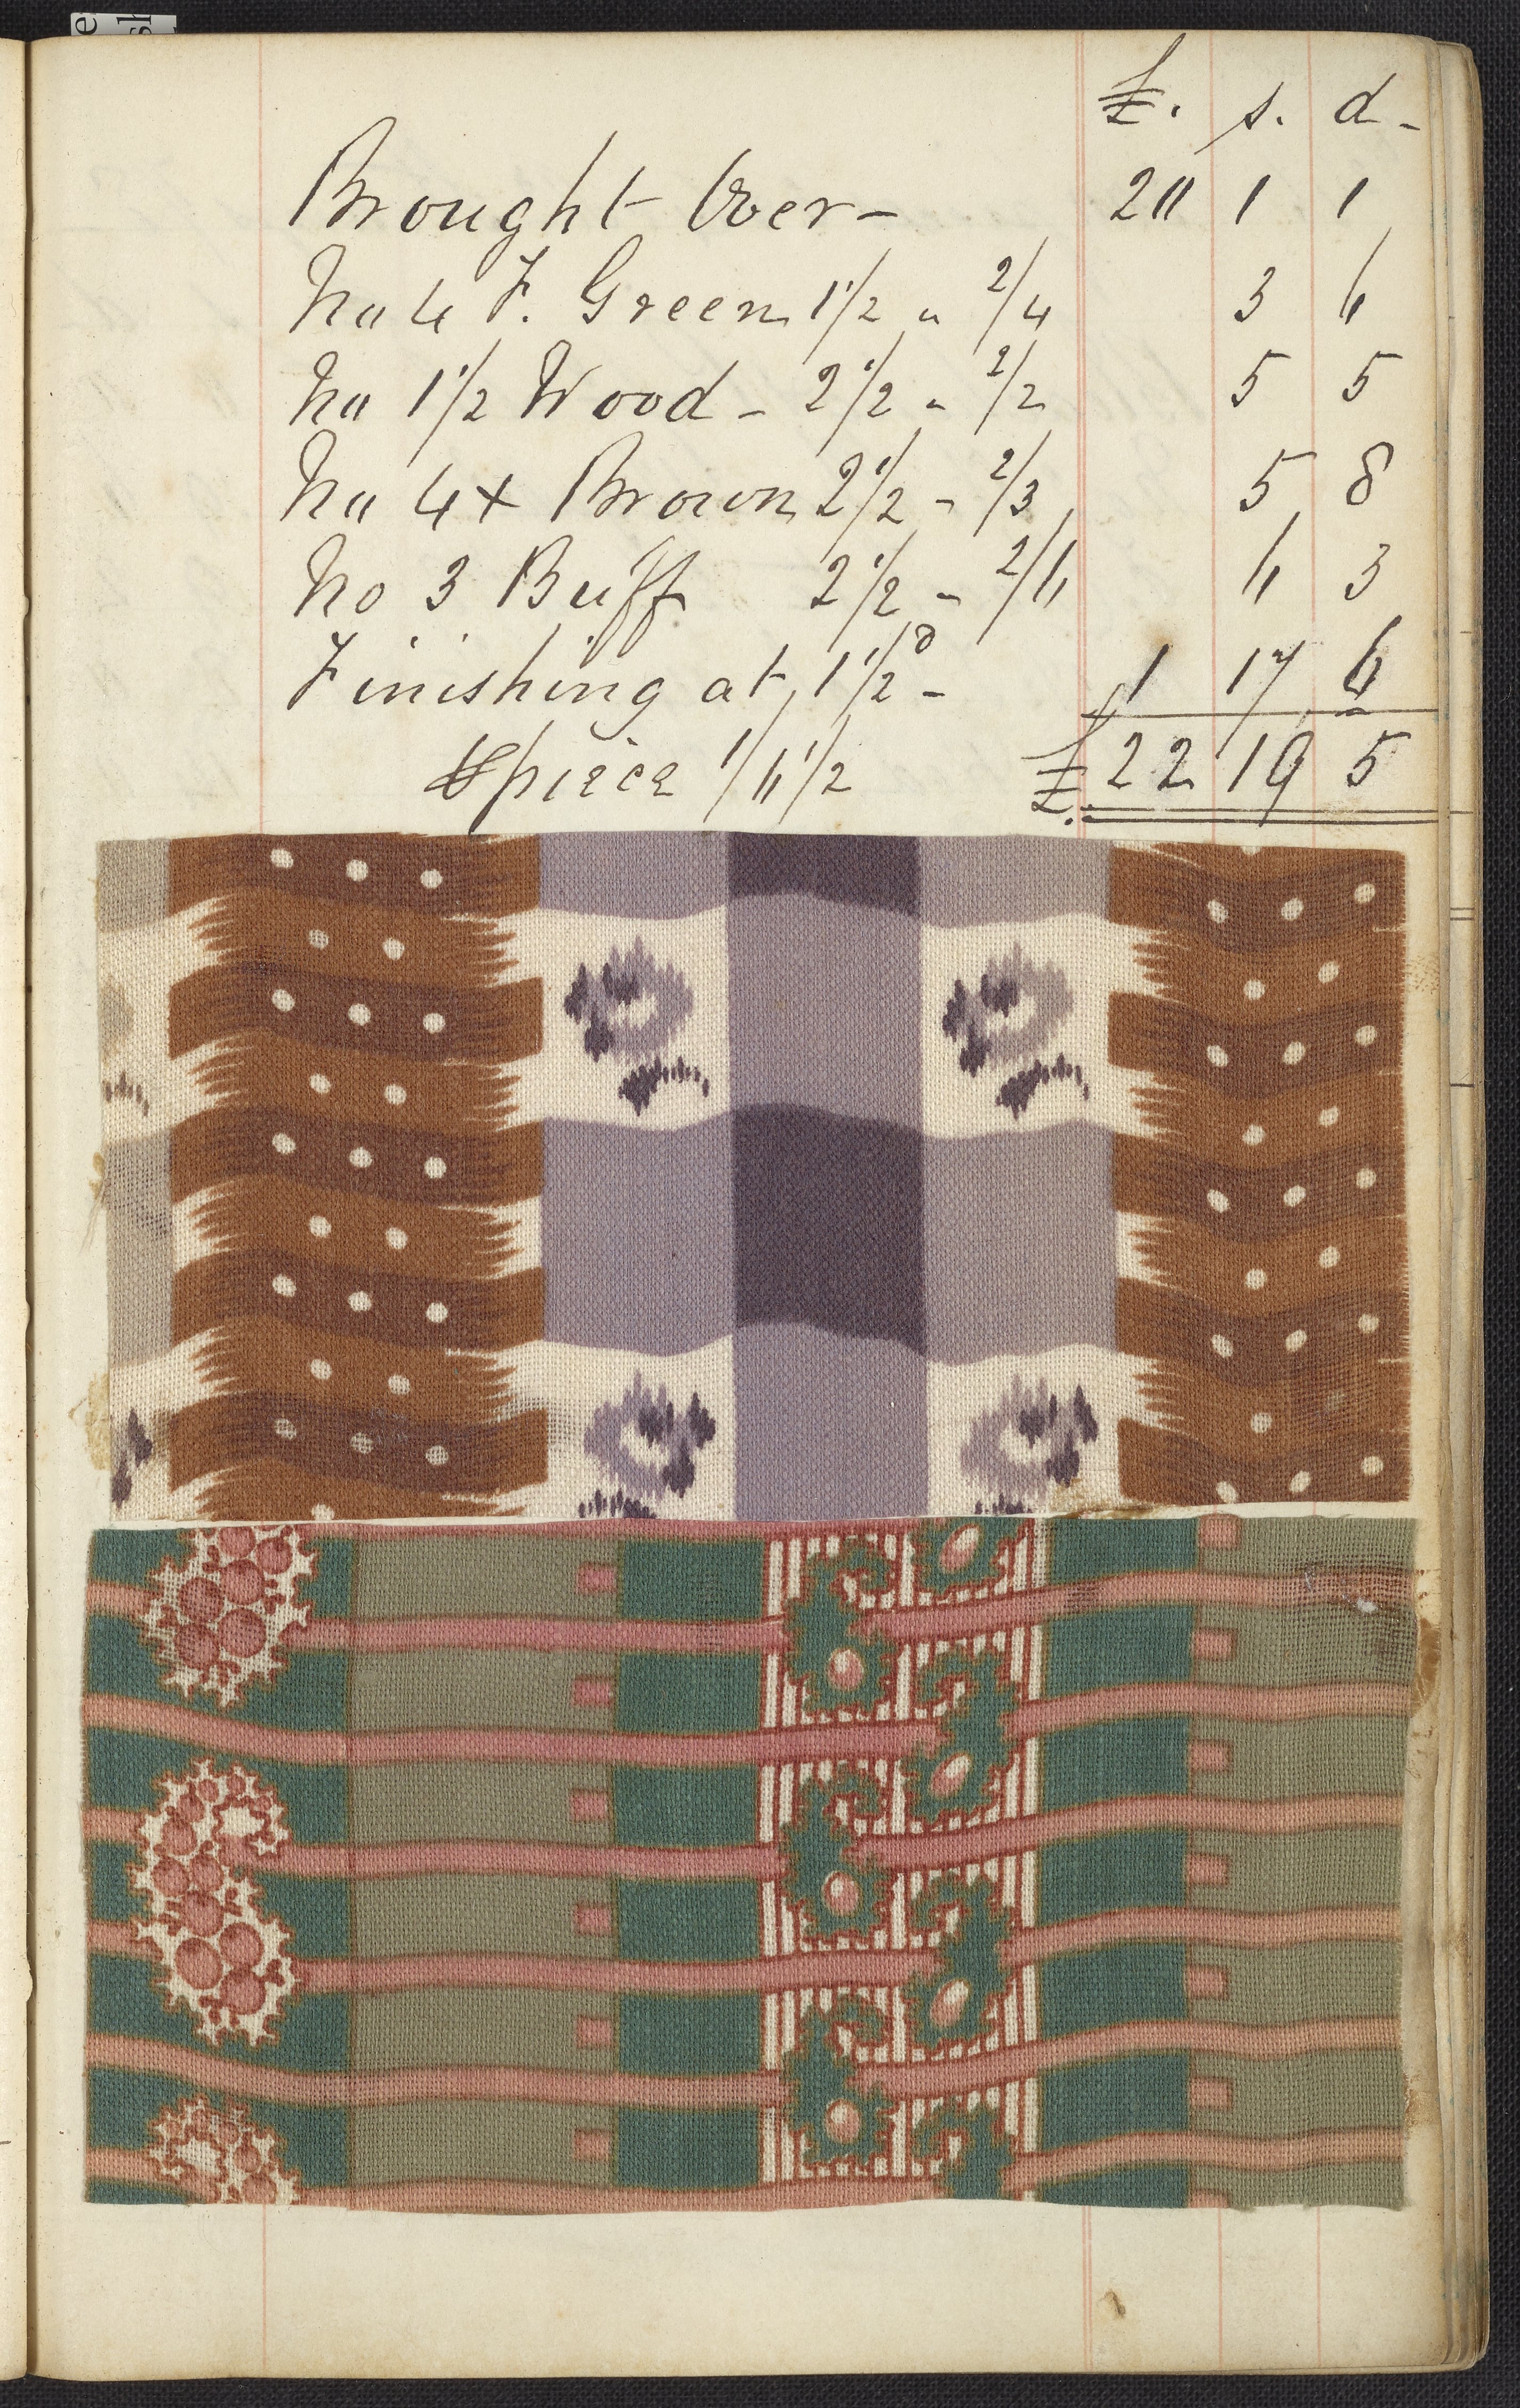 £. s. d-
Brought Over- 20 1 1
No 4 F. Green 1 1/2 " 2/4 3 6
No 1 1/2 Wood - 2 1/2 " 2/2 5 5
No 4+ Brown 2 1/2 - 2/3 5 8
No 3 Buff 2 1/2 - 2/6 6 3
Finishing at 1 1/2 d - 1 17 6
piece 1/6 1/2 £. 22 19 5